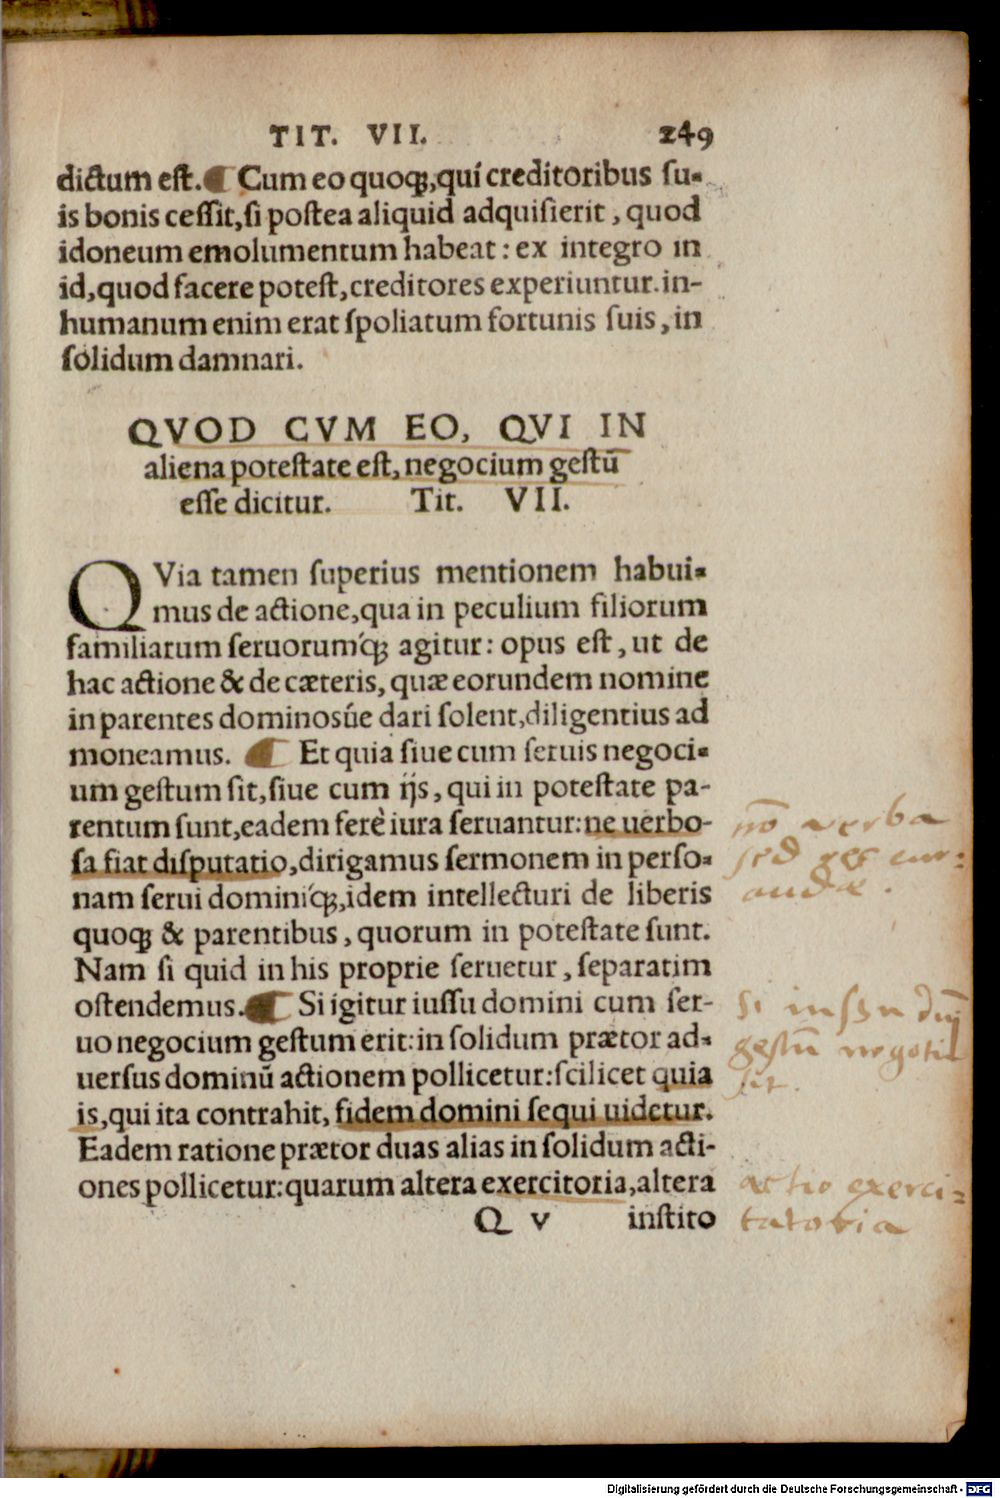 TIT. VII. 249
dictum est.¶ Cum eo quoqꝫ,qui creditoribus su-
is bonis cessit,si postea aliquid adquisierit, quod
idoneum emolumentum habeat: ex integro in
id,quod facere potest,creditores experiuntur.in-
humanum enim erat spoliatum fortunis suis, in
solidum damnari.
QVOD CVM EO, QVI IN
aliena potestate est, negocium gestū
esse dicitur. Tit. VII.
QVia tamen superius mentionem habui-
mus de actione,qua in peculium filiorum
familiarum seruorumq́ꝫ agitur: opus est, ut de
hac actione & de cæteris, quæ eorundem nomine
in parentes dominosúe dari solent,diligentius ad
moneamus. ¶ Et quia siue cum seruis negoci-
um gestum sit,siue cum ijs, qui in potestate pa-
rentum sunt,eadem ferè iura seruantur:ne uerbo-
sa fiat disputatio,dirigamus sermonem in perso-
nam serui dominiq́ꝫ,idem intellecturi de liberis
quoqꝫ & parentibus, quorum in potestate sunt.
Nam si quid in his proprie seruetur, separatim
ostendemus.¶ Si igitur iussu domini cum ser-
uo negocium gestum erit:in solidum prætor ad-
uersus dominū actionem pollicetur:scilicet quia
is,qui ita contrahit, fidem domini sequi uidetur.
Eadem ratione prætor duas alias in solidum acti-
ones pollicetur:quarum altera exercitoria,altera
Q v instito
nō verba
sed res cur-
andæ.
Si iussu
gestū negoti
sit.
actio exerci-
tatoria
Digitalisierung gefördert durch die Deutsche Forschungsgemeinschaft - DFG